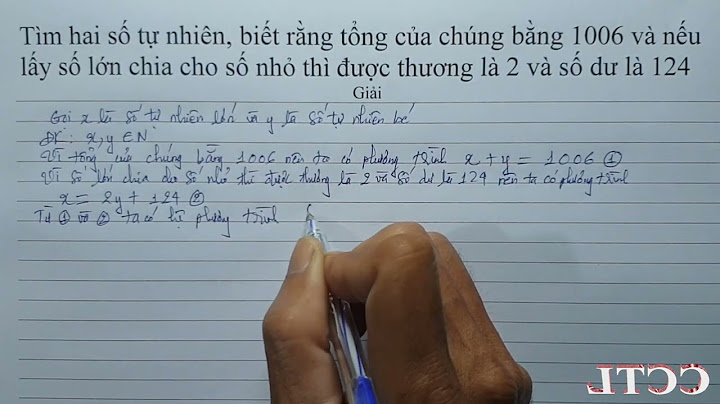 Tìm hai số tự nhiên, biết rằng tổng của chúng bằng 1006 và nếu
lấy số lớn chia cho số nhỏ thì được thương là 2 và số dư là 124
Giải
Gọi x là số tự nhiên lớn và y là số tự nhiên bé
ĐK: x, y ∈ N
Vì tổng của chúng bằng 1006 nên ta có phương trình x + y = 1006 ①
Vì số lớn chia cho số nhỏ thì được thương là 2 và số dư là 124 nên ta có phương trình
x = 2y + 124 ②
Từ ① và ② ta có hệ phương trình
CCTL